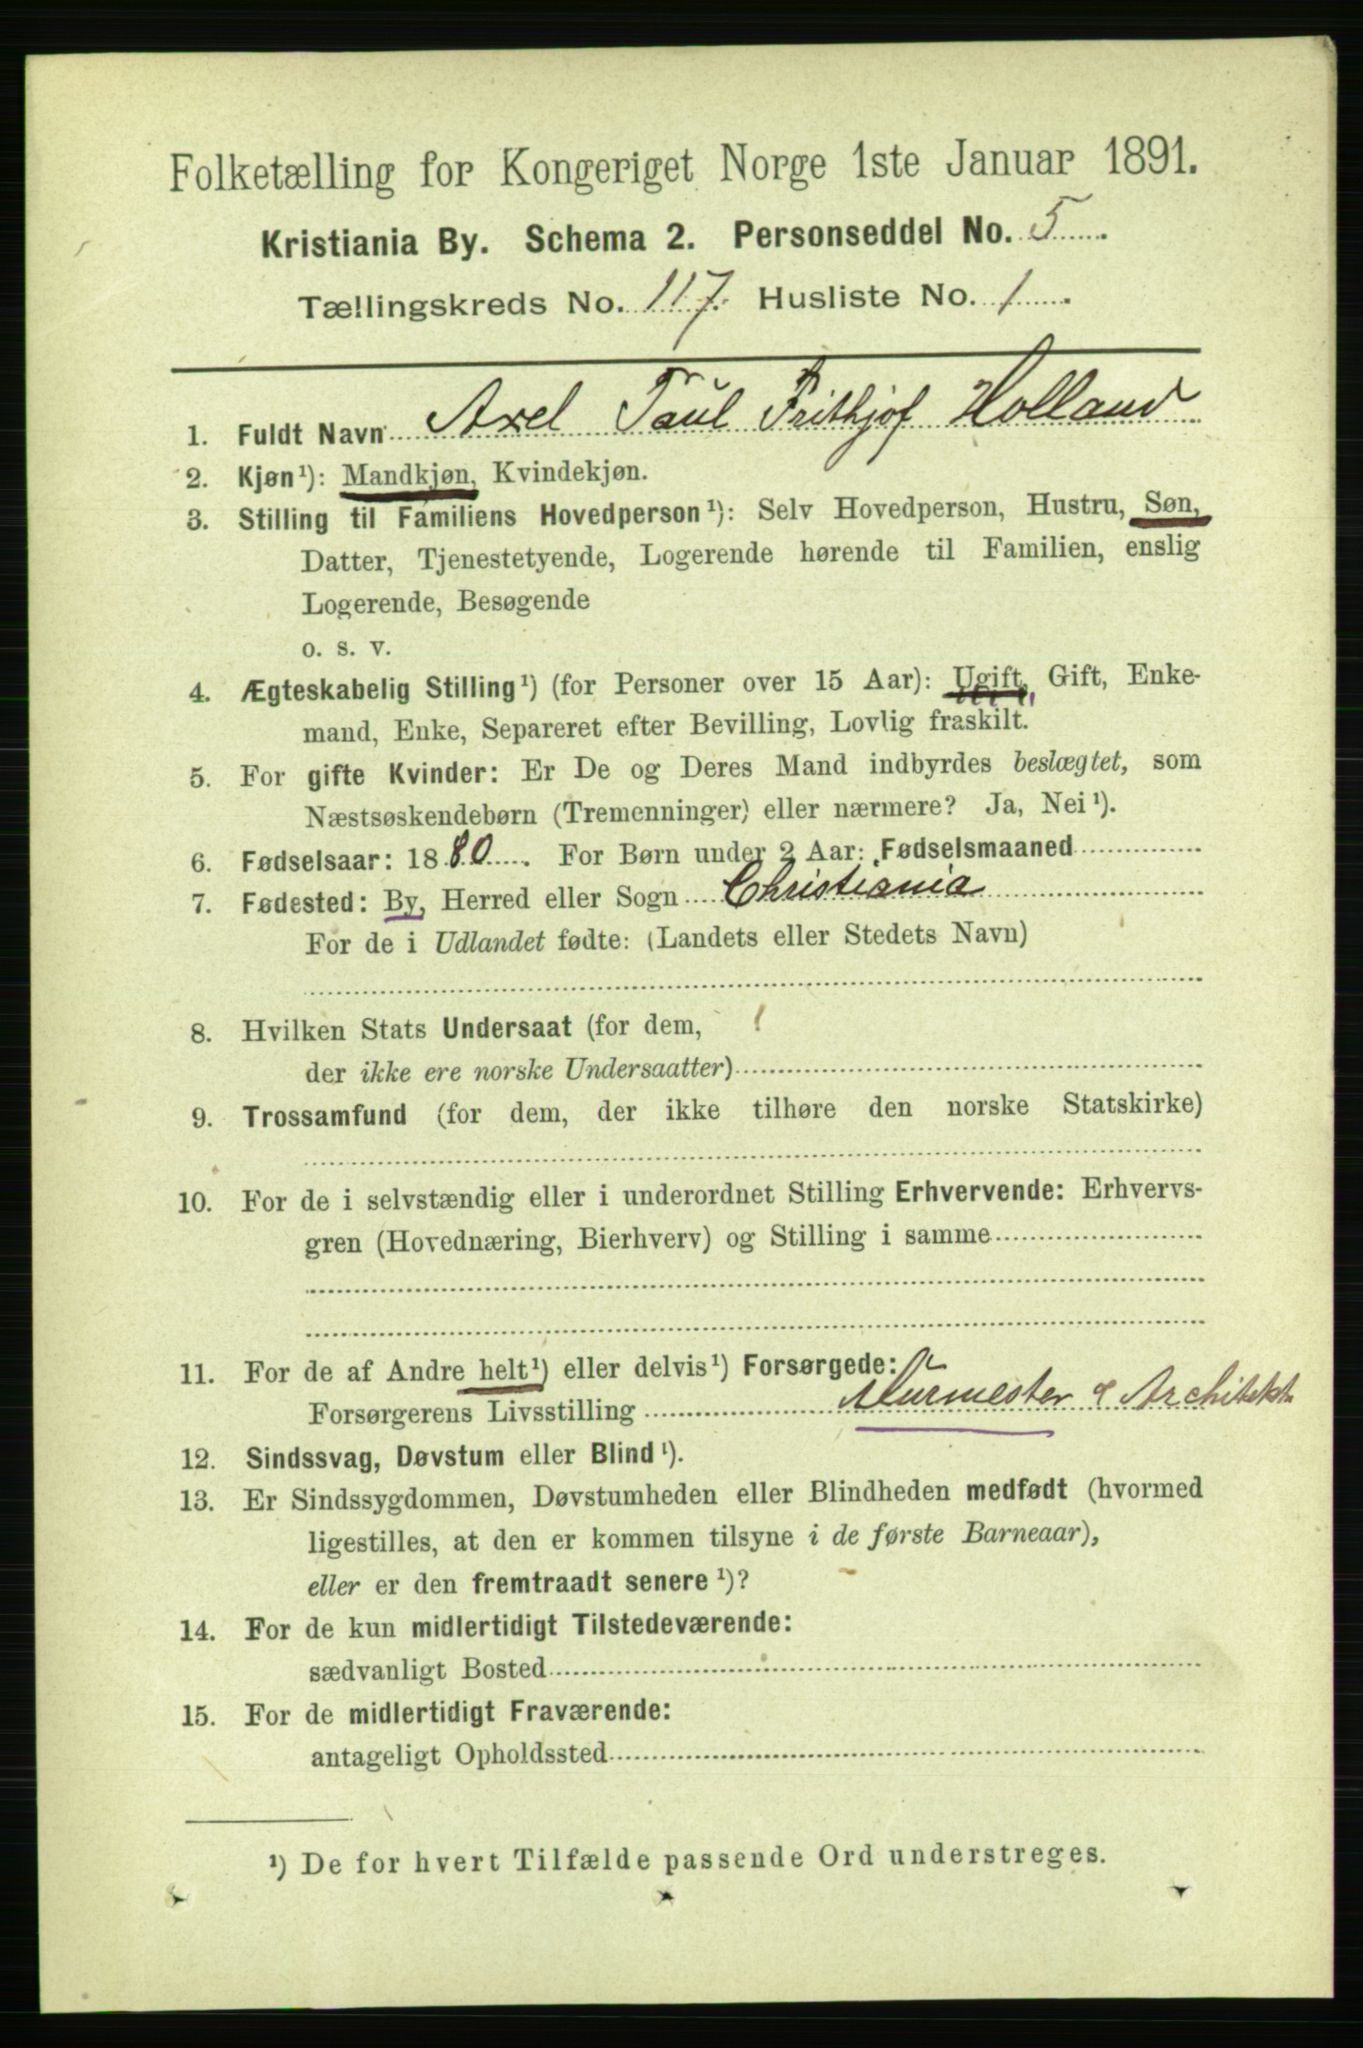 Folketælling for Kongeriget Norge 1ste Januar 1891.
Kristiania By. Schema 2. Personseddel No. 5
Tællingskreds No. 117. Husliste No. 1
1. Fuldt Navn Axel Paul Frithjof Holland
2. Kjøn¹): Mandkjøn, Kvindekjøn.
3. Stilling til Familiens Hovedperson¹): Selv Hovedperson, Hustru, Søn,
Datter, Tjenestetyende, Logerende hørende til Familien, enslig
Logerende, Besøgende
o. s. v.
4. Ægteskabelig Stilling¹) (for Personer over 15 Aar): Ugift, Gift, Enke-
mand, Enke, Separeret efter Bevilling, Lovlig fraskilt.
5. For gifte Kvinder: Er De og Deres Mand indbyrdes beslægtet, som
Næstsøskendebørn (Tremenninger) eller nærmere? Ja, Nei¹).
6. Fødselsaar: 1880. For Børn under 2 Aar: Fødselsmaaned
7. Fødested: By, Herred eller Sogn Christiania
For de i Udlandet fødte: (Landets eller Stedets Navn)
8. Hvilken Stats Undersaat (for dem,
der ikke ere norske Undersaatter)
9. Trossamfund (for dem, der ikke tilhøre den norske Statskirke)
10. For de i selvstændig eller i underordnet Stilling Erhvervende: Erhvervs-
gren (Hovednæring, Bierhverv) og Stilling i samme
11. For de af Andre helt¹) eller delvis¹) Forsørgede:
Forsørgerens Livsstilling Murmester & Architekt
12. Sindssvag, Døvstum eller Blind¹).
13. Er Sindssygdommen, Døvstumheden eller Blindheden medfødt (hvormed
ligestilles, at den er kommen tilsyne i de første Barneaar),
eller er den fremtraadt senere¹)?
14. For de kun midlertidigt Tilstedeværende:
sædvanligt Bosted
15. For de midlertidigt Fraværende:
antageligt Opholdssted
¹) De for hvert Tilfælde passende Ord understreges.